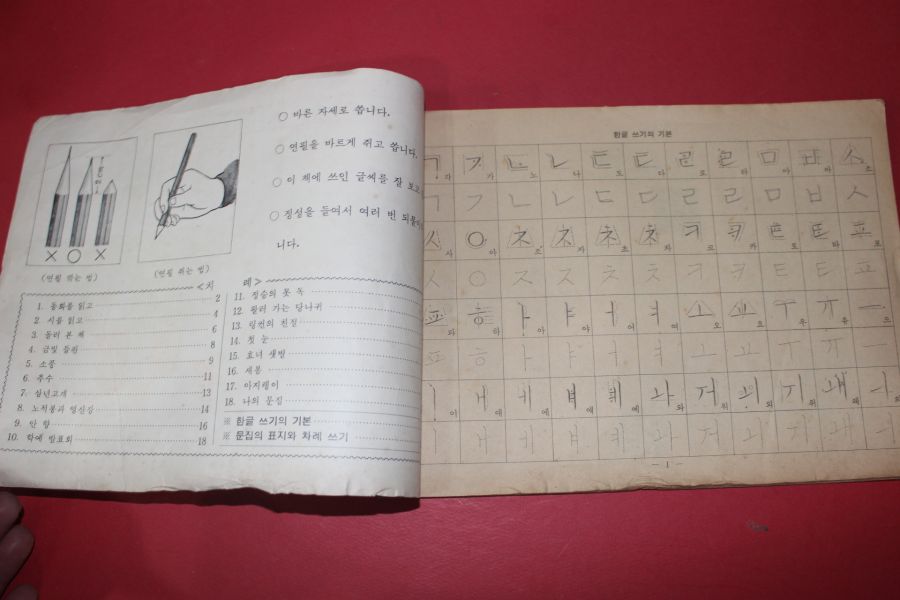 ○ 바른 자세로 씁니다.
○ 연필을 바르게 쥐고 씁니다.
○ 이 책에 쓰인 글씨를 잘 보고
○ 정성을 들여서 여러 번
니다.
× ○ ×
×
(연필 깎는 법)
(연필 쥐는 법)
<차 례>
1. 동화를 읽고 2
2. 시를 읽고 4
3. 돌려 본 책 6
4. 금빛 들판 8
5. 소풍 9
6. 추수 11
7. 삼년고개 13
8. 노적봉과 영산강 14
9. 안 항 16
10. 학예 발표회 18
11. 정승의 못 독
12. 팔려 가는 당나귀
13. 링컨의 친절
14. 첫 눈
15. 효녀 샛별
16. 세봄
17. 아지랭이
18. 나의 문집
※ 한글 쓰기의 기본
※ 문집의 표지와 차례 쓰기
한글 쓰기의 기본
ㄱ ㄱ ㄴ ㄴ ㄷ ㄷ ㄹ ㄹ ㅁ ㅂ ㅅ
ㄱ ㄱ ㄴ ㄴ ㄷ ㄷ ㄹ ㄹ ㅁ ㅂ ㅅ
ㅅ ㅇ ㅈ ㅈ ㅊ ㅊ ㅋ ㅋ ㅌ ㅌ ㅍ
ㅅ ㅇ ㅈ ㅈ ㅊ ㅊ ㅋ ㅋ ㅌ ㅌ ㅍ
ㅍ ㅎ ㅏ ㅑ ㅓ ㅕ ㅗ ㅛ ㅜ ㅠ ㅡ
ㅍ ㅎ ㅏ ㅑ ㅓ ㅕ ㅗ ㅛ ㅜ ㅠ ㅡ
ㅣ ㅐ ㅔ ㅒ ㅖ ㅘ ㅝ ㅚ ㅟ ㅙ ㅢ
ㅣ ㅐ ㅔ ㅒ ㅖ ㅘ ㅝ ㅚ ㅟ ㅙ ㅢ
— 1 —